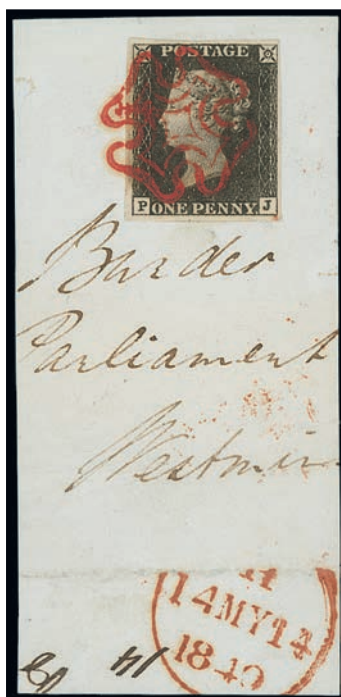 POSTAGE
P ONE PENNY J
Burder
Parliament
Westmin
14MY14
1840
14